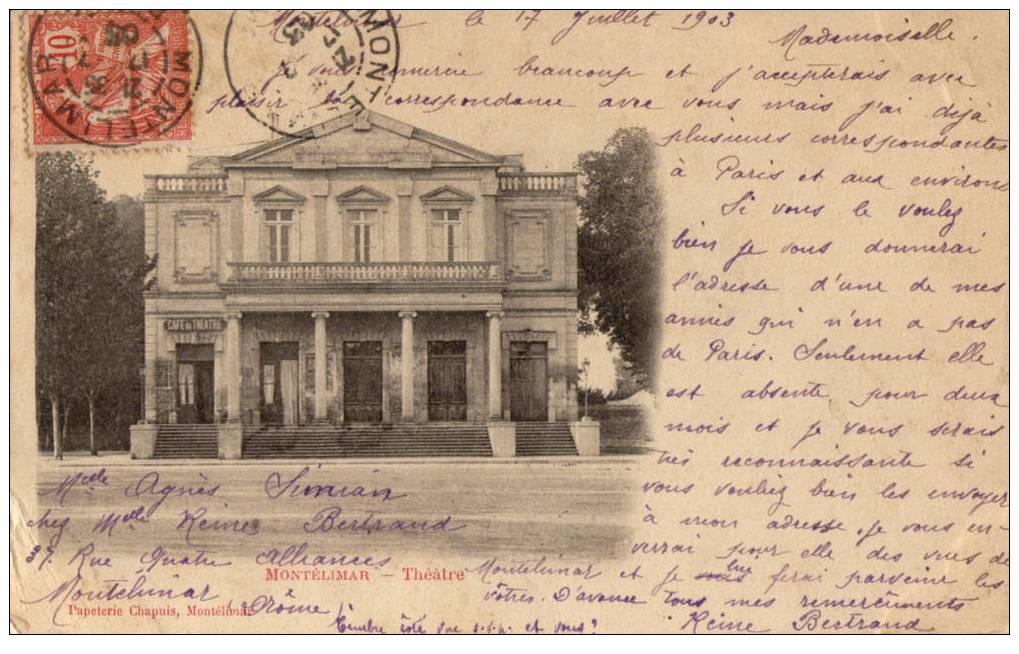 Montélimar le 17 Juillet 1903
Mademoiselle.
Je vous remercie beaucoup et j'accepterais avec
plaisir la correspondance avec vous mais j'ai déjà
plusieurs correspondantes
à Paris et aux environs
Si vous le voulez
bien je vous donnerai
l'adresse d'une de mes
amies qui n'en a pas
de Paris. Seulement elle
est absente pour deux
mois et je vous serais
très reconnaissante si
vous vouliez bien les envoyer
à mon adresse. Je vous en-
verrai pour elle des vues de
Montélimar et je lui ferai parvenir les
vôtres. D'avance tous mes remerciments
Reine Bertrand
10
MONTELIMAR
MONTELIMAR
CAFE DU THEATRE
Melle Agnès Simian
chez Melle Reine Bertrand
37. Rue Quatre Alliances
Montélimar
(Drôme)
MONTÉLIMAR — Théâtre
Papeterie Chapuis, Montélimar
Timbre côté vue s.v.p. et vous?